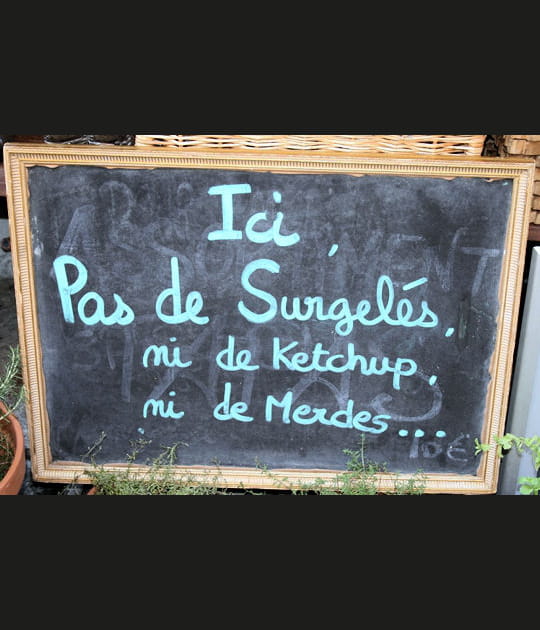 Ici,
Pas de Surgelés,
ni de Ketchup,
ni de Merdes...